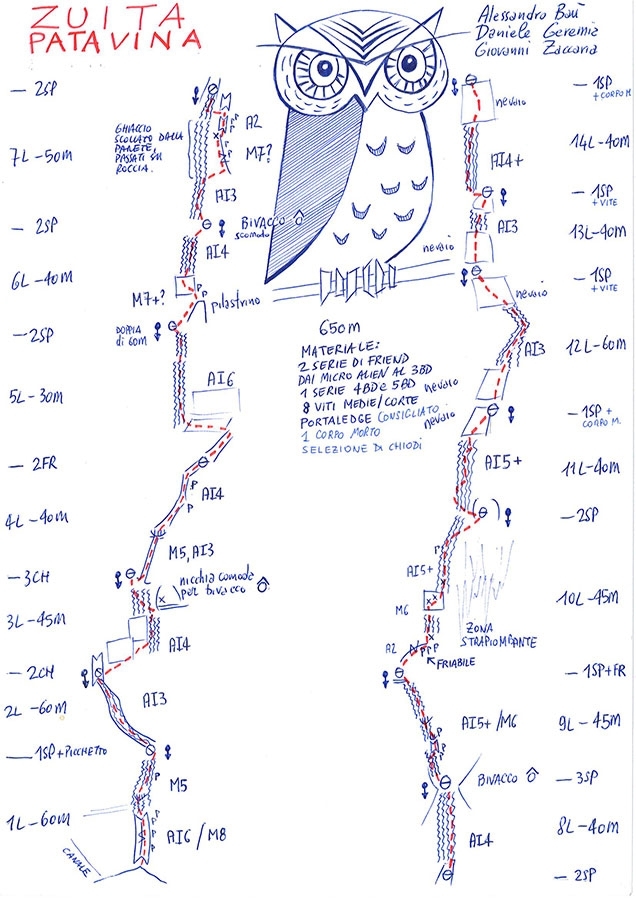 ZUITA
PATAVINA
Alessandro Baù
Daniele Geremia
Giovanni Zaccaria
— 2SP
GHIACCIO
SCOLLATO DALLA
PARETE,
PASSATI SU
ROCCIA.
M
P
A2
M7?
7L - 50m
AI3
— 2SP
BIVACCO
scomodo
AI4
6L - 40m
M7+?
P
P
pilastrino
— 2SP
DOPPIA
di 60m
AI6
5L - 30m
— 2FR
P
AI4
P
4L - 40m
M5, AI3
— 3CH
nicchia comoda
per bivacco
3L - 45m
AI4
— 2CH
AI3
2L - 60m
— 1SP + PICCHETTO
P
M5
1L - 60m
P
AI6 / M8
CANALE
650m
MATERIALE:
2 SERIE DI FRIEND
DAI MICRO ALIEN AL 3BD
1 SERIE 4BD e 5BD
8 VITI MEDIE/CORTE
PORTALEDGE CONSIGLIATO
1 CORPO MORTO
SELEZIONE DI CHIODI
— 1SP
+ CORPO M.
nevaio
14L - 40m
AI4+
— 1SP
+ VITE
AI3
13L - 40m
nevaio
— 1SP
+ VITE
nevaio
AI3
12L - 60m
nevaio
— 1SP +
CORPO M.
nevaio
AI5+
11L - 40m
— 2SP
P
AI5+
10L - 45m
M6
ZONA
STRAPIOMBANTE
A2
P P P
FRIABILE
— 1SP + FR
AI5+ / M6
9L - 45m
P
BIVACCO
— 3SP
8L - 40m
AI4
— 2SP